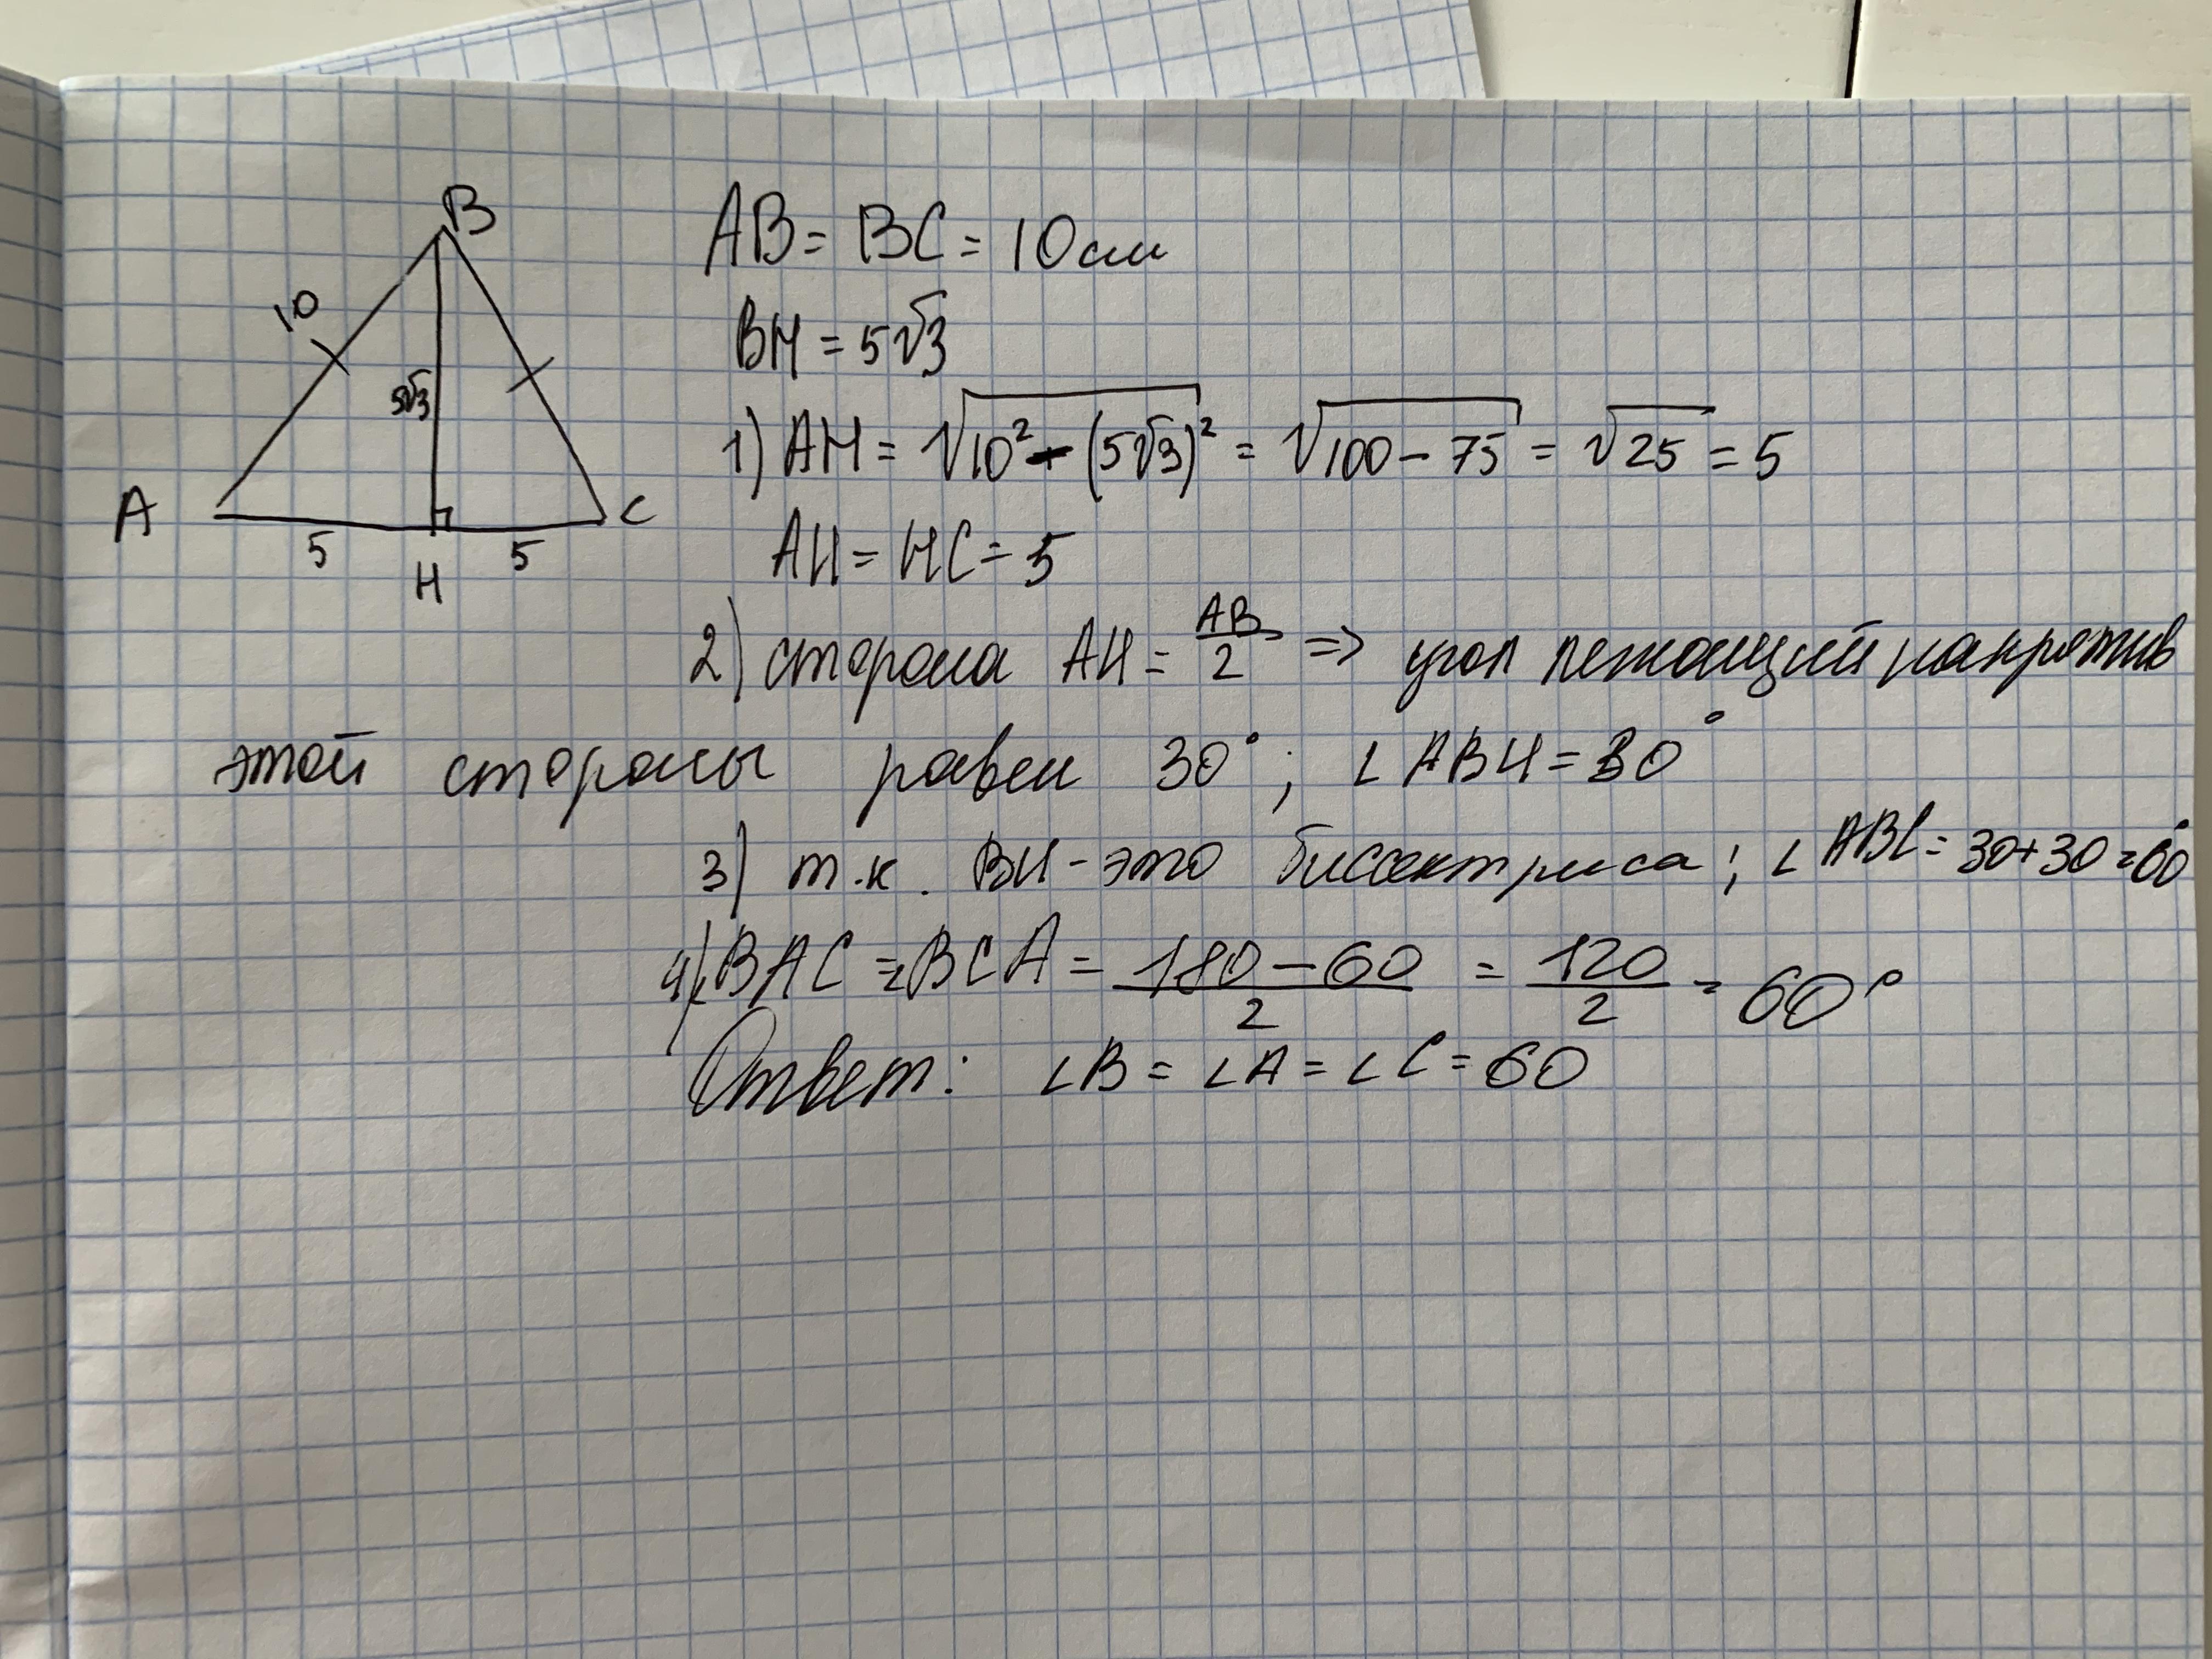 B
10
5√3
A
C
5
5
H
AB = BC = 10 см
BH = 5√3
1) AH = √10² - (5√3)² = √100 - 75 = √25 = 5
AH = HC = 5
2) сторона AH = AB/2 => угол лежащий напротив
этой стороны равен 30°; ∠ABH = 30°
3) т.к. BH - это биссектриса; ∠ABC = 30+30=60°
4) ∠BAC = ∠BCA = 180-60/2 = 120/2 = 60°
Ответ: ∠B = ∠A = ∠C = 60